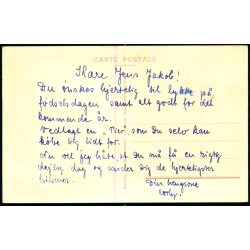 CARTE POSTALE
Kære Jens Jakob!
Du ønskes hjertelig til lykke på
fødselsdagen samt alt godt for det
kommende år.
Vedlagt en "Tier", som Du selv kan
købe dig lidt for.
Nu vil jeg håbe at Du må få en rigtig
dejlig dag og sender dig de hjerteligste
hilsener.
Din hengivne